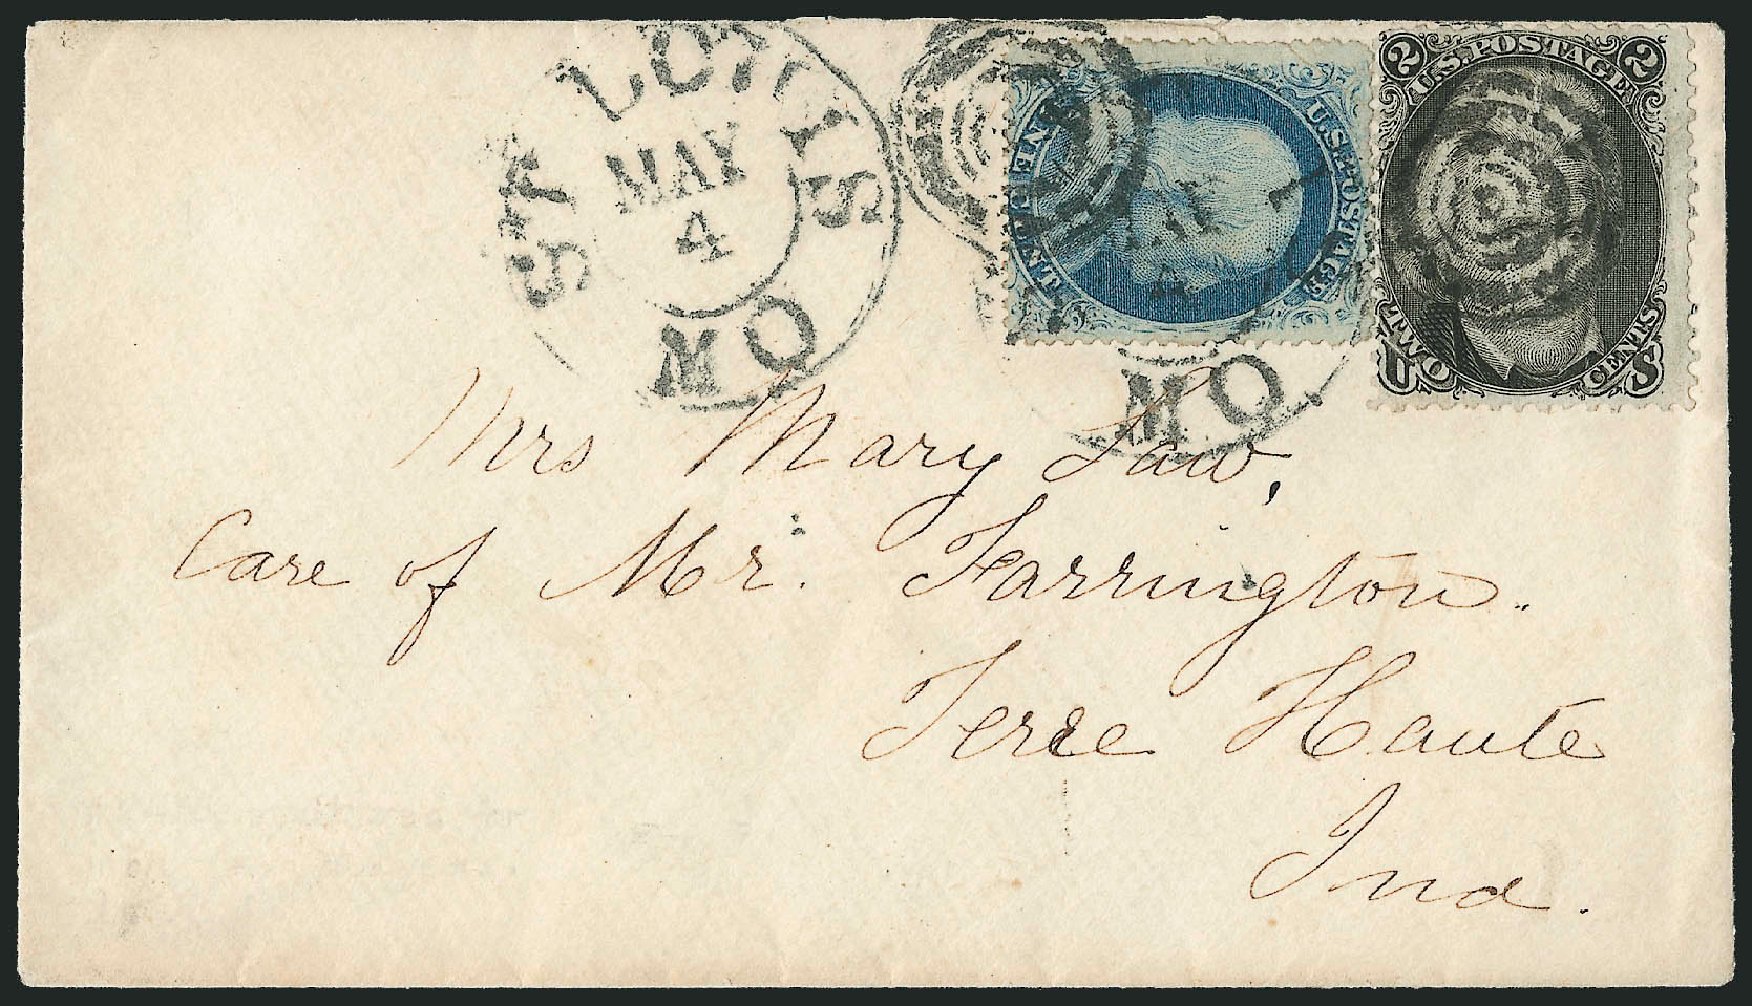 ST. LOUIS
MAY
4
MO
U.S. POSTAGE
ONE CENT
MAY
4
MO
2 U.S. POSTAGE 2
TWO CENTS
U S
Mrs Mary Law,
Care of Mr. Farrington.
Terre Haute
Ind.